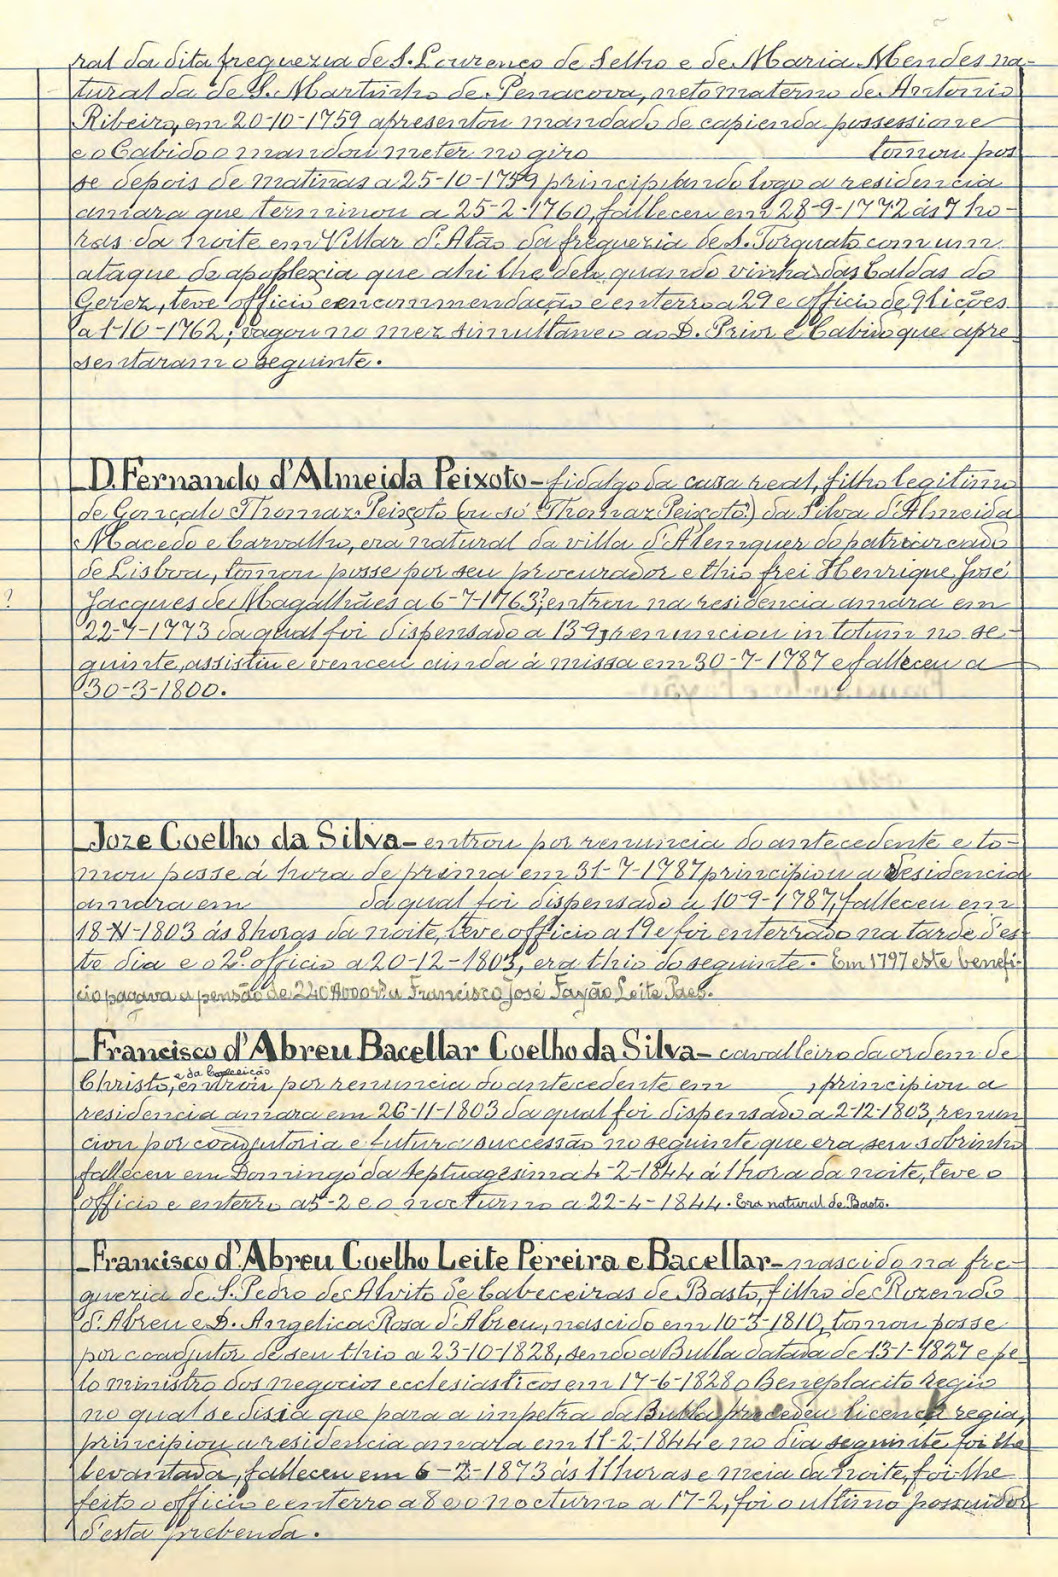 ral da dita freguezia de S. Lourenço de Selho e de Maria Mendes na-
tural da de S. Martinho de Penacova, neto materno de Antonio
Ribeiro, em 20-10-1759 apresentou mandado de capienda possessione
e o Cabido o mandou meter no giro tomou pos
se depois de matinas a 25-10-1759 principiando logo a residencia
amara que terminou a 25-2-1760, falleceu em 28-9-1772 ás 7 ho-
ras da noite em Villar d'Atão da freguezia de S. Torquato com um
ataque de apoplexia que ahi lhe deu quando vinha das Caldas do
Gerez, teve officio e encommendação e enterro a 29 e officio de 9 lições
a 1-10-1762; vagou no mez simultaneo ao D. Prior e Cabido que apre
sentaram o seguinte.
D. Fernando d'Almeida Peixoto- fidalgo da casa real, filho legitimo
de Gonçalo Thomaz Peixoto (ou só Thomaz Peixoto?) da Silva d'Almeida
Macedo e Carvalho, era natural da villa d'Alemquer do patriarcado
de Lisboa, tomou posse por seu procurador e thio frei Henrique José
? Jacques de Magalhães a 6-7-1763?, entrou na residencia amara em
22-7-1773 da qual foi dispensado a 13-9, renunciou in totum no se-
guinte, assistiu e venceu ainda á missa em 30-7-1787 e falleceu a
30-3-1800.
Joze Coelho da Silva- entrou por renuncia do antecedente e to-
mou posse á hora de prima em 31-7-1787 principiou a residencia
amara em da qual foi dispensado a 10-9-1787, falleceu em
18-XI-1803 ás 8 horas da noite, teve officio a 19 e foi enterrado na tarde d'es-
te dia e o 2º officio a 20-12-1803, era thio do seguinte. Em 1797 este benefi-
cio pagava a pensão de a Francisco José Fayão Leite Paes.
Francisco d'Abreu Bacellar Coelho da Silva- cavalleiro da ordem de
e da Conceição
Christo, entrou por renuncia do antecedente em , principiou a
residencia amara em 26-11-1803 da qual foi dispensado a 2-12-1803, renun
ciou por coadjutoria e futura successão no seguinte que era seu sobrinho
falleceu em Domingo da Septuagesima 4-2-1844 á 1 hora da noite, teve o
officio e enterro a 5-2 e o nocturno a 22-4-1844. Era natural de Basto.
Francisco d'Abreu Coelho Leite Pereira e Bacellar- nascido na fre-
guezia de S. Pedro de Alvito de Cabeceiras de Basto, filho de Rozendo
d'Abreu e D. Angelica Rosa d'Abreu, nascido em 10-3-1810, tomou posse
por coadjutor de seu thio a 23-10-1828, sendo a Bulla datada de 13-1-1827 e pe-
lo ministro dos negocios ecclesiasticos em 17-6-1828 o Beneplacito regio
no qual se disia que para a impetra da Bulla precedeu licença regia,
principiou a residencia amara em 11-2-1844 e no dia seguinte foi lhe
levantada, falleceu em 6-2-1873 ás 11 horas e meia da noite, foi-lhe
feito o officio e enterro a 8 e o nocturno a 17-2, foi o ultimo possuidor
d'esta prebenda.